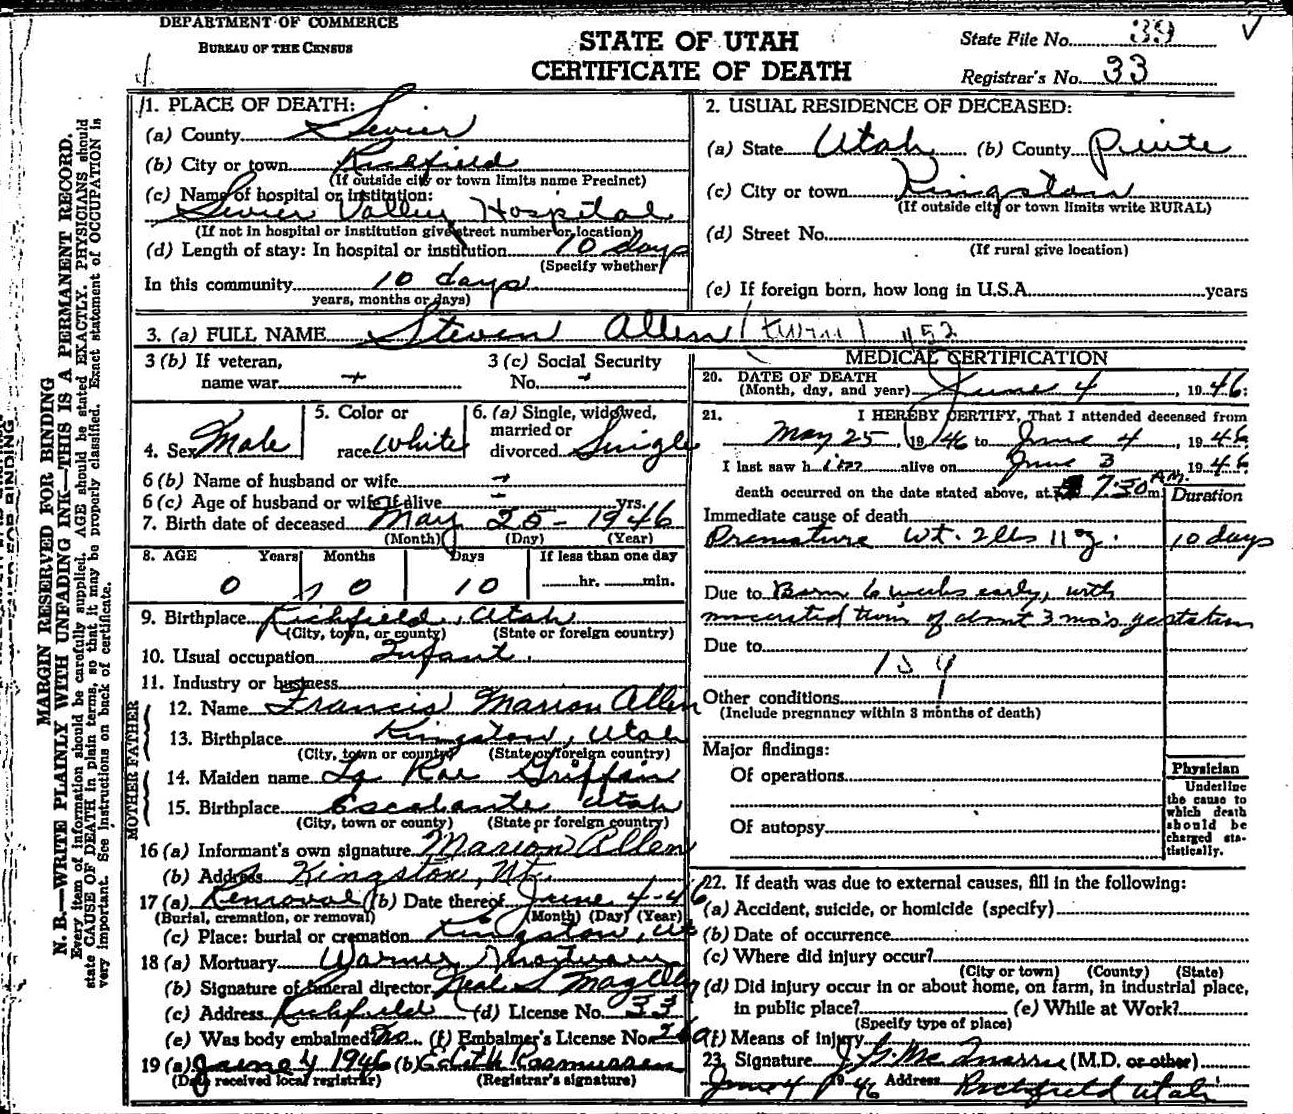 DEPARTMENT OF COMMERCE
BUREAU OF THE CENSUS
STATE OF UTAH
CERTIFICATE OF DEATH
State File No. 39
Registrar's No. 33
MARGIN RESERVED FOR BINDING
N. B.—WRITE PLAINLY WITH UNFADING INK—THIS IS A PERMANENT RECORD.
Every item of information should be carefully supplied. AGE should be stated EXACTLY. PHYSICIANS should
state CAUSE OF DEATH in plain terms, so that it may be properly classified. Exact statement of OCCUPATION is
very important. See instructions on back of certificate.
1. PLACE OF DEATH:
(a) County Sevier
(b) City or town Richfield
(If outside city or town limits name Precinct)
(c) Name of hospital or institution:
Sevier Valley Hospital
(If not in hospital or institution give street number or location)
(d) Length of stay: In hospital or institution 10 days
(Specify whether
In this community 10 days
years, months or days)
2. USUAL RESIDENCE OF DECEASED:
(a) State Utah (b) County Piute
(c) City or town Kingston
(If outside city or town limits write RURAL)
(d) Street No.
(If rural give location)
(e) If foreign born, how long in U.S.A. years
3. (a) FULL NAME Steven Allen (twin) 452
3 (b) If veteran,
name war
3 (c) Social Security
No. -
4. Sex Male
5. Color or
race White
6. (a) Single, widowed,
married or
divorced Single
6 (b) Name of husband or wife -
6 (c) Age of husband or wife if alive - yrs.
7. Birth date of deceased May 25 - 1946
(Month) (Day) (Year)
8. AGE Years Months Days If less than one day
0 0 10 hr. min.
9. Birthplace Richfield, Utah
(City, town, or county) (State or foreign country)
10. Usual occupation Infant.
11. Industry or business
FATHER
12. Name Francis Marion Allen
13. Birthplace Kingston, Utah
(City, town or county) (State or foreign country)
MOTHER
14. Maiden name La Rae Griffin
15. Birthplace Escalante Utah
(City, town or county) (State or foreign country)
16 (a) Informant's own signature Marion Allen
(b) Address Kingston, Ut.
17 (a) Removal (b) Date thereof June 4-46
(Burial, cremation, or removal) (Month) (Day) (Year)
(c) Place: burial or cremation Kingston, Ut
18 (a) Mortuary Mortuary
(b) Signature of funeral director Neal S Magleby
(c) Address Richfield (d) License No. 33
(e) Was body embalmed? No (f) Embalmer's License No.
19 (a) June 4 1946 (b) Edith Rasmussen
(Date received local registrar) (Registrar's signature)
MEDICAL CERTIFICATION
20. DATE OF DEATH
(Month, day, and year) June 4, 1946
21. I HEREBY CERTIFY, That I attended deceased from
May 25, 1946 to June 4, 1946
I last saw him alive on June 3 1946
death occurred on the date stated above, at 7:30 A.M. m.
Duration
Immediate cause of death
Premature wt. 2 lbs 11 oz. 10 days
Due to Born 6 weeks early, with
macerated twin of about 3 mo's gestation
Due to
159
Other conditions
(Include pregnancy within 3 months of death)
Major findings:
Of operations
Of autopsy
Physician
Underline
the cause to
which death
should be
charged sta-
tistically.
22. If death was due to external causes, fill in the following:
(a) Accident, suicide, or homicide (specify)
(b) Date of occurrence
(c) Where did injury occur?
(City or town) (County) (State)
(d) Did injury occur in or about home, on farm, in industrial place,
in public place? (e) While at Work?
(Specify type of place)
(f) Means of injury
23. Signature J. G. (M.D. or other)
June 4 1946 Address Richfield Utah